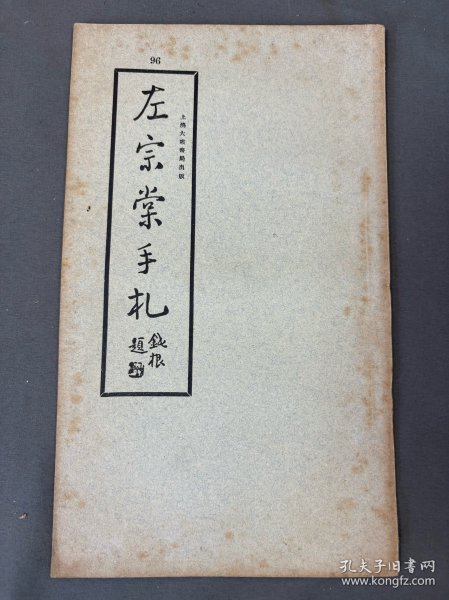 96
上海大眾書局出版
左宗棠手札
鈍根
題
孔夫子旧书网
www.kongfz.com